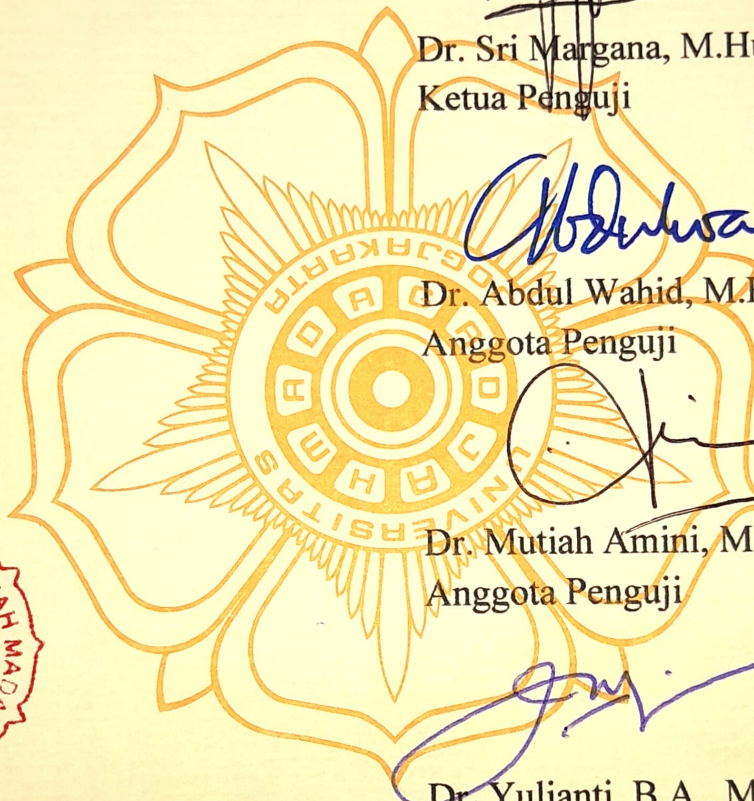 Dr. Sri Margana, M.Hu
Ketua Penguji
Dr. Abdul Wahid, M.
Anggota Penguji
Dr. Mutiah Amini, M
Anggota Penguji
Dr. Yulianti, B.A., M
UNIVERSITAS
GADJAH MADA
YOGJAKARTA
AH MADA